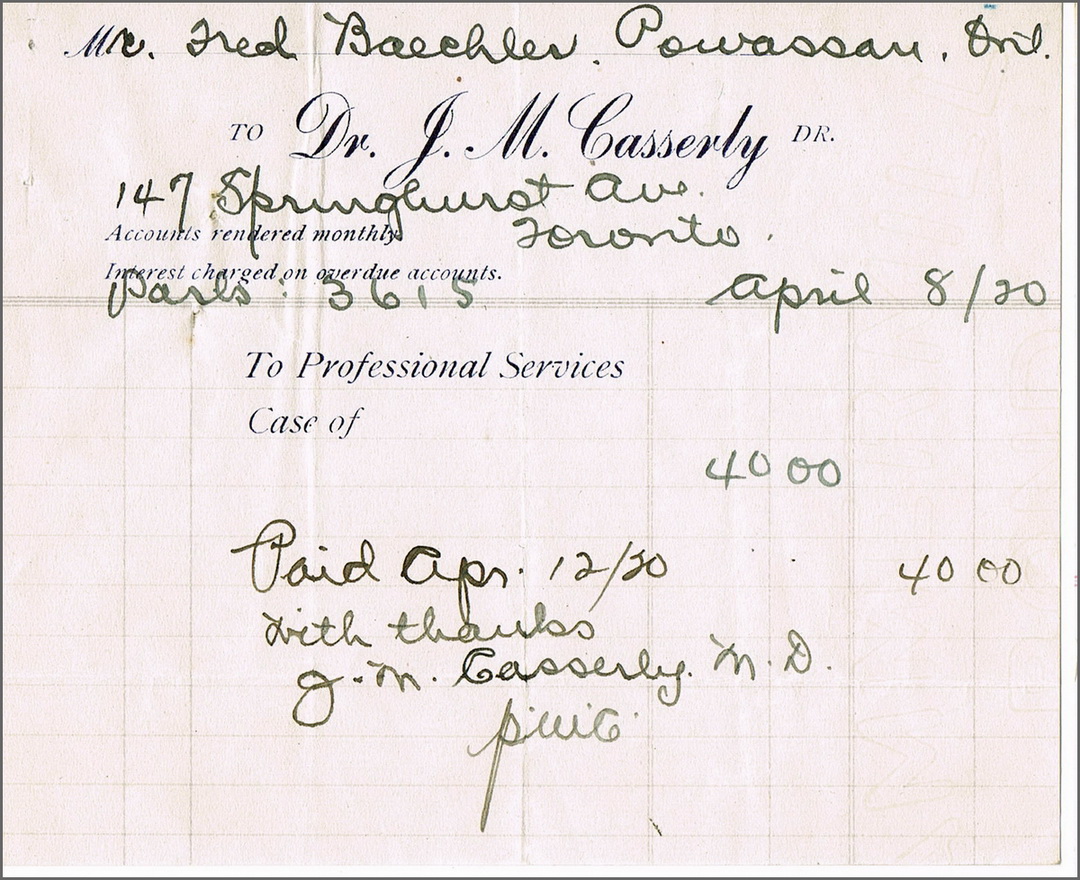 Mr. Fred Baechler. Powassan, Ont.
TO Dr. J. M. Casserly DR.
147 Springhurst Ave.
Accounts rendered monthly. Toronto.
Interest charged on overdue accounts.
3615 April 8/20
To Professional Services
Case of
40 00
Paid Apr. 12/20 40 00
with thanks
J. M. Casserly. M. D.